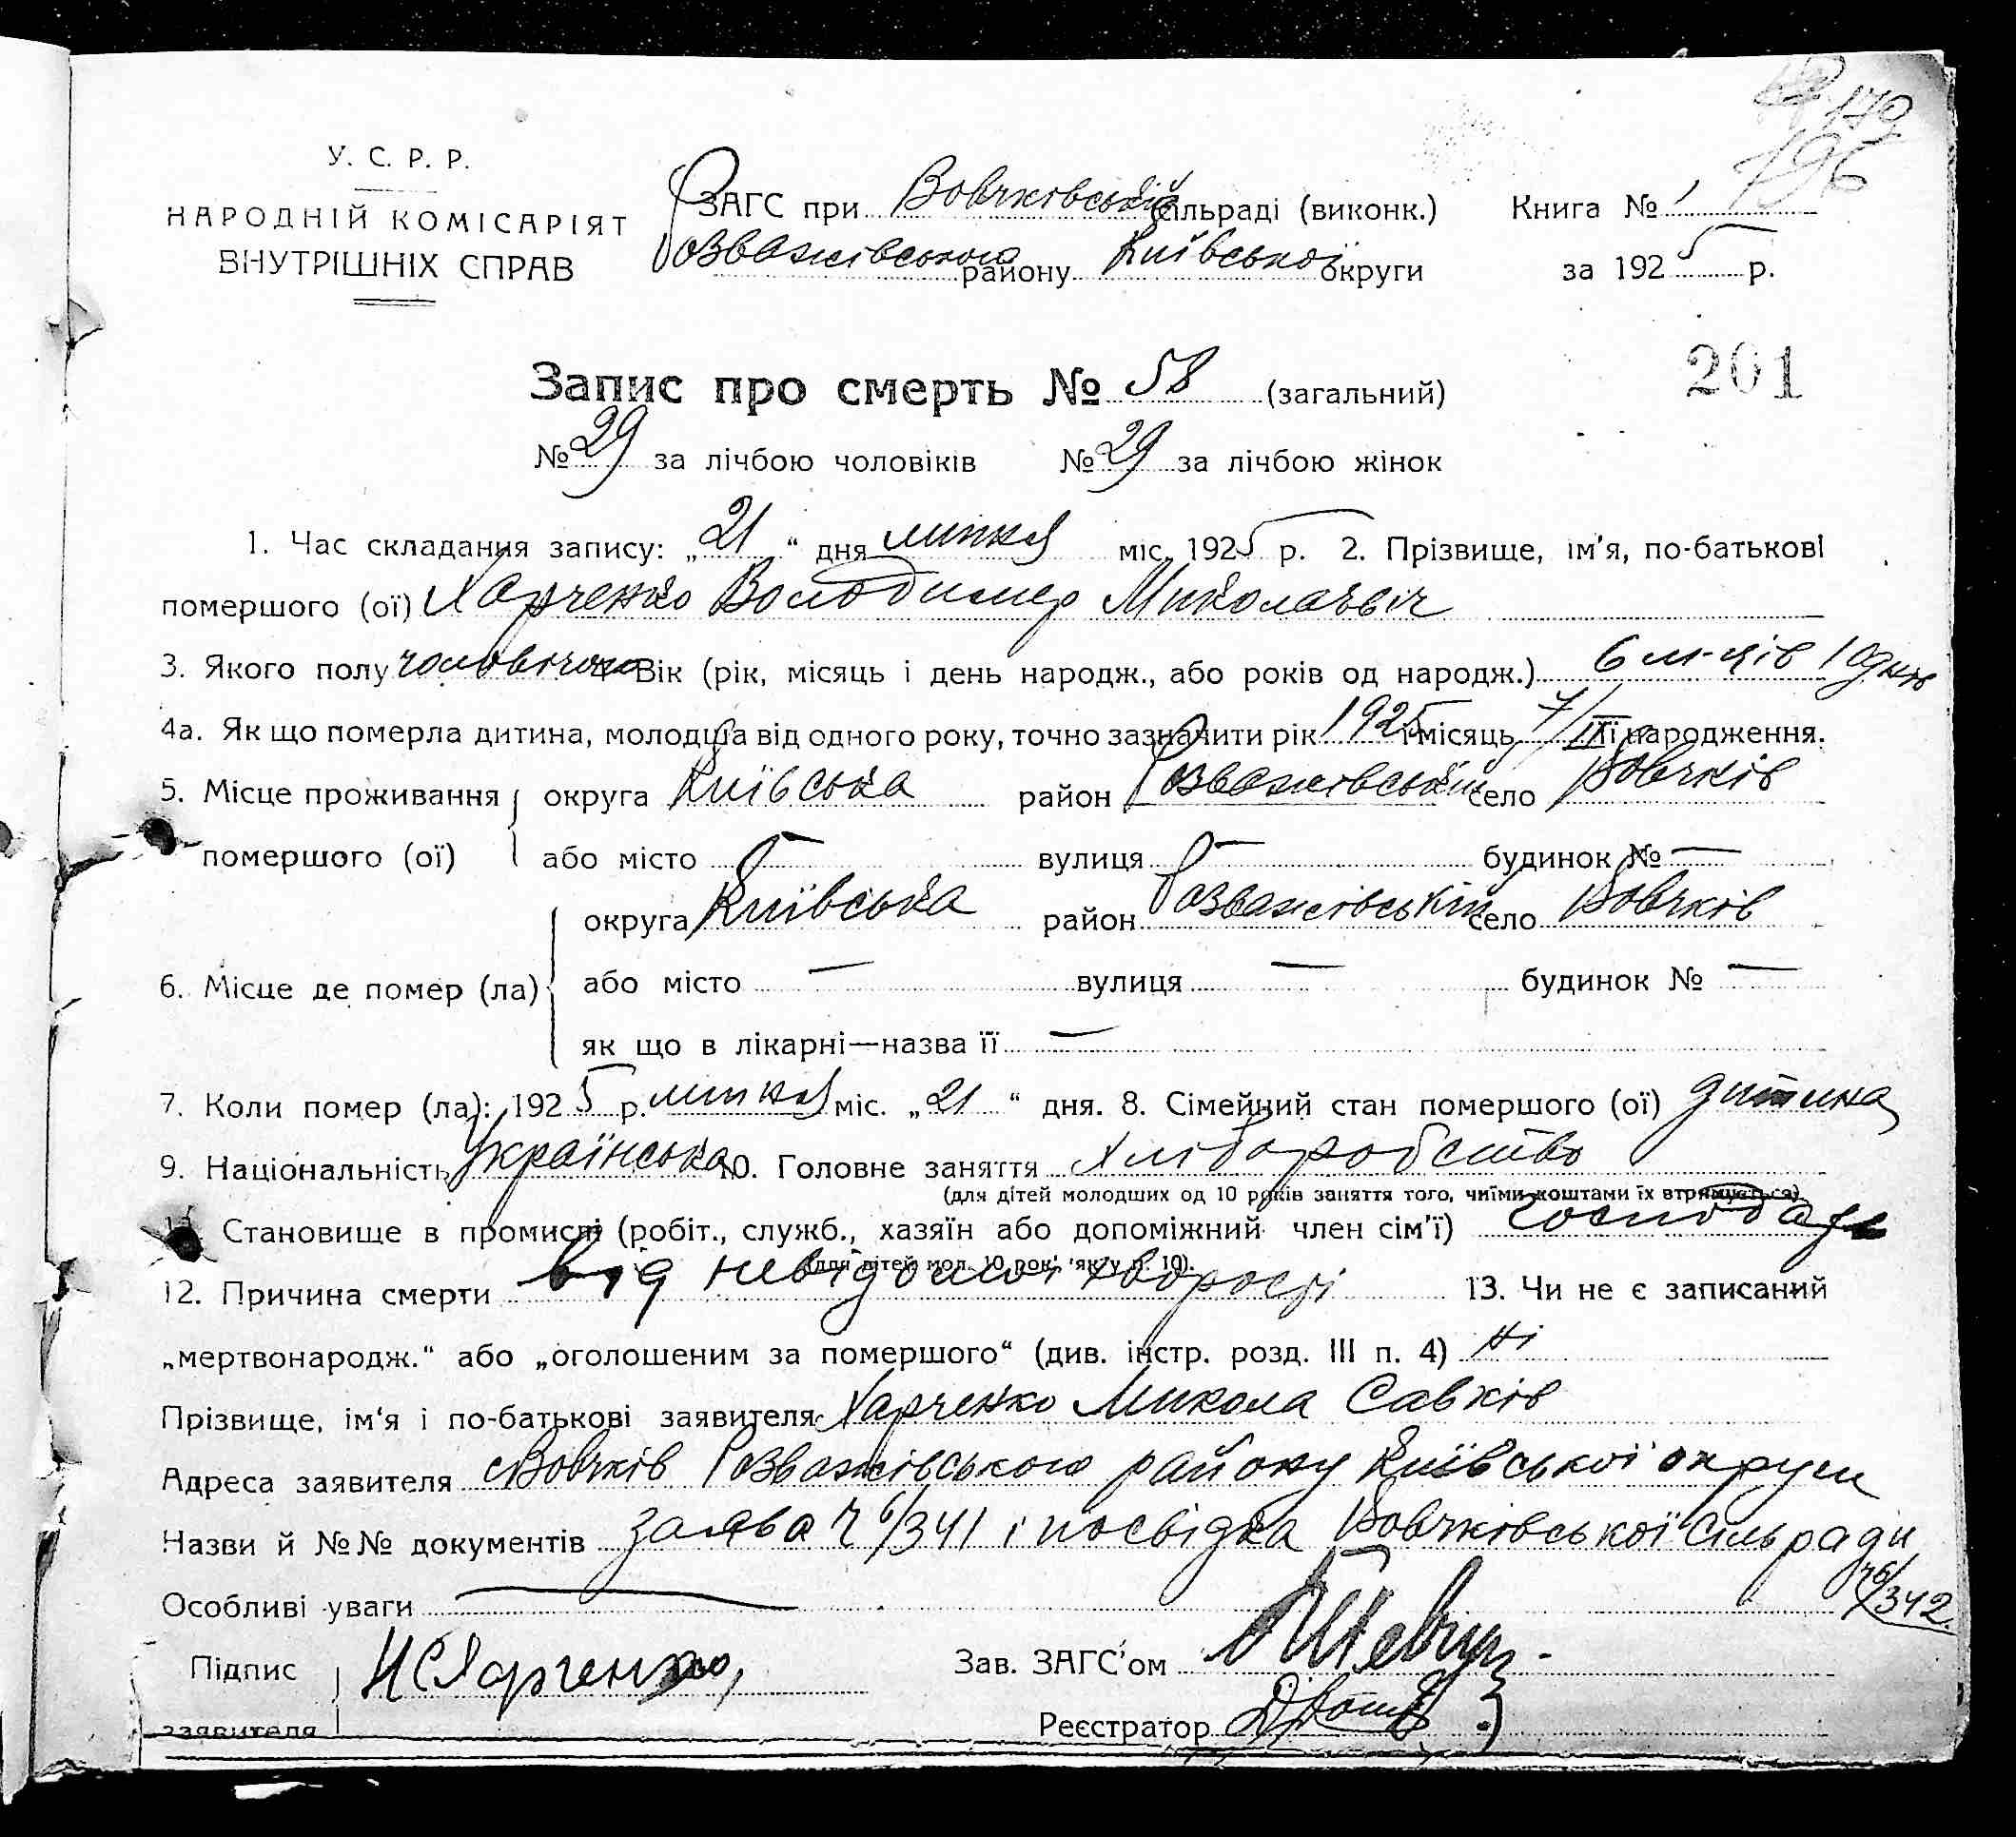 170
196
У. С. Р. Р.
НАРОДНІЙ КОМІСАРІЯТ
ВНУТРІШНІХ СПРАВ
ЗАГС при Вовчківській сільраді (виконк.) Книга № 1
Розважівського району Київської округи за 1925 р.
201
Запис про смерть № 58 (загальний)
№ 29 за лічбою чоловіків № 29 за лічбою жінок
1. Час складання запису: „21“ дня липня міс. 1925 р. 2. Прізвище, ім'я, по-батькові
помершого (ої) Харченко Володимер Миколаєвіч
3. Якого полу чоловічого 4. Вік (рік, місяць і день народж., або років од народж.) 6 м-ців
4а. Як що померла дитина, молодша від одного року, точно зазначити рік 1925 і місяць 7/І її народження.
5. Місце проживання округа Київська район Розважівський село Вовчків
помершого (ої) або місто — вулиця — будинок № —
округа Київська район Розважівський село Вовчків
6. Місце де помер (ла) або місто — вулиця — будинок № —
як що в лікарні—назва її —
7. Коли помер (ла): 1925 р. липня міс. „21“ дня. 8. Сімейний стан помершого (ої) дитина
9. Національність Українська 10. Головне заняття хліборобство
(для дітей молодших од 10 років заняття того, чиїми коштами їх втримується)
11. Становище в промислі (робіт., служб., хазяїн або допоміжний член сім'ї) господарь
(для дітей мол. 10 рок. як у п. 10).
12. Причина смерти від невідомої хворости 13. Чи не є записаний
„мертвонародж.“ або „оголошеним за помершого“ (див. інстр. розд. III п. 4) ні
Прізвище, ім'я і по-батькові заявителя Харченко Микола Савків
Адреса заявителя с Вовчків Розважівського району Київської округи
Назви й №№ документів заява ч 6/341 і посвідка Вовчківської Сільради
ч 6/342.
Особливі уваги —
Підпис НС Харченко, Зав. ЗАГС'ом
заявителя Реєстратор